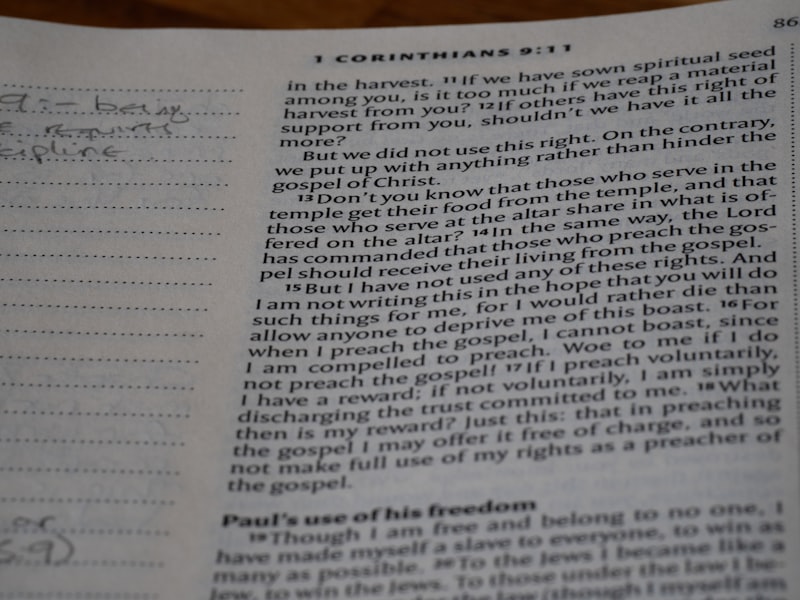 1 CORINTHIANS 9:11
86
9:- being
requires
cipline
or
5-9)
in the harvest. 11 If we have sown spiritual seed
among you, is it too much if we reap a material
harvest from you? 12 If others have this right of
support from you, shouldn't we have it all the
more?
But we did not use this right. On the contrary,
we put up with anything rather than hinder the
gospel of Christ.
13 Don't you know that those who serve in the
temple get their food from the temple, and that
those who serve at the altar share in what is of-
fered on the altar? 14 In the same way, the Lord
has commanded that those who preach the gos-
pel should receive their living from the gospel.
15 But I have not used any of these rights. And
I am not writing this in the hope that you will do
such things for me, for I would rather die than
allow anyone to deprive me of this boast. 16 For
when I preach the gospel, I cannot boast, since
I am compelled to preach. Woe to me if I do
not preach the gospel! 17 If I preach voluntarily,
I have a reward; if not voluntarily, I am simply
discharging the trust committed to me. 18 What
then is my reward? Just this: that in preaching
the gospel I may offer it free of charge, and so
not make full use of my rights as a preacher of
the gospel.
Paul's use of his freedom
19 Though I am free and belong to no one, I
have made myself a slave to everyone, to win as
many as possible. 20 To the Jews I became like a
Jew, to win the Jews. To those under the law I be-
the law (though I myself am